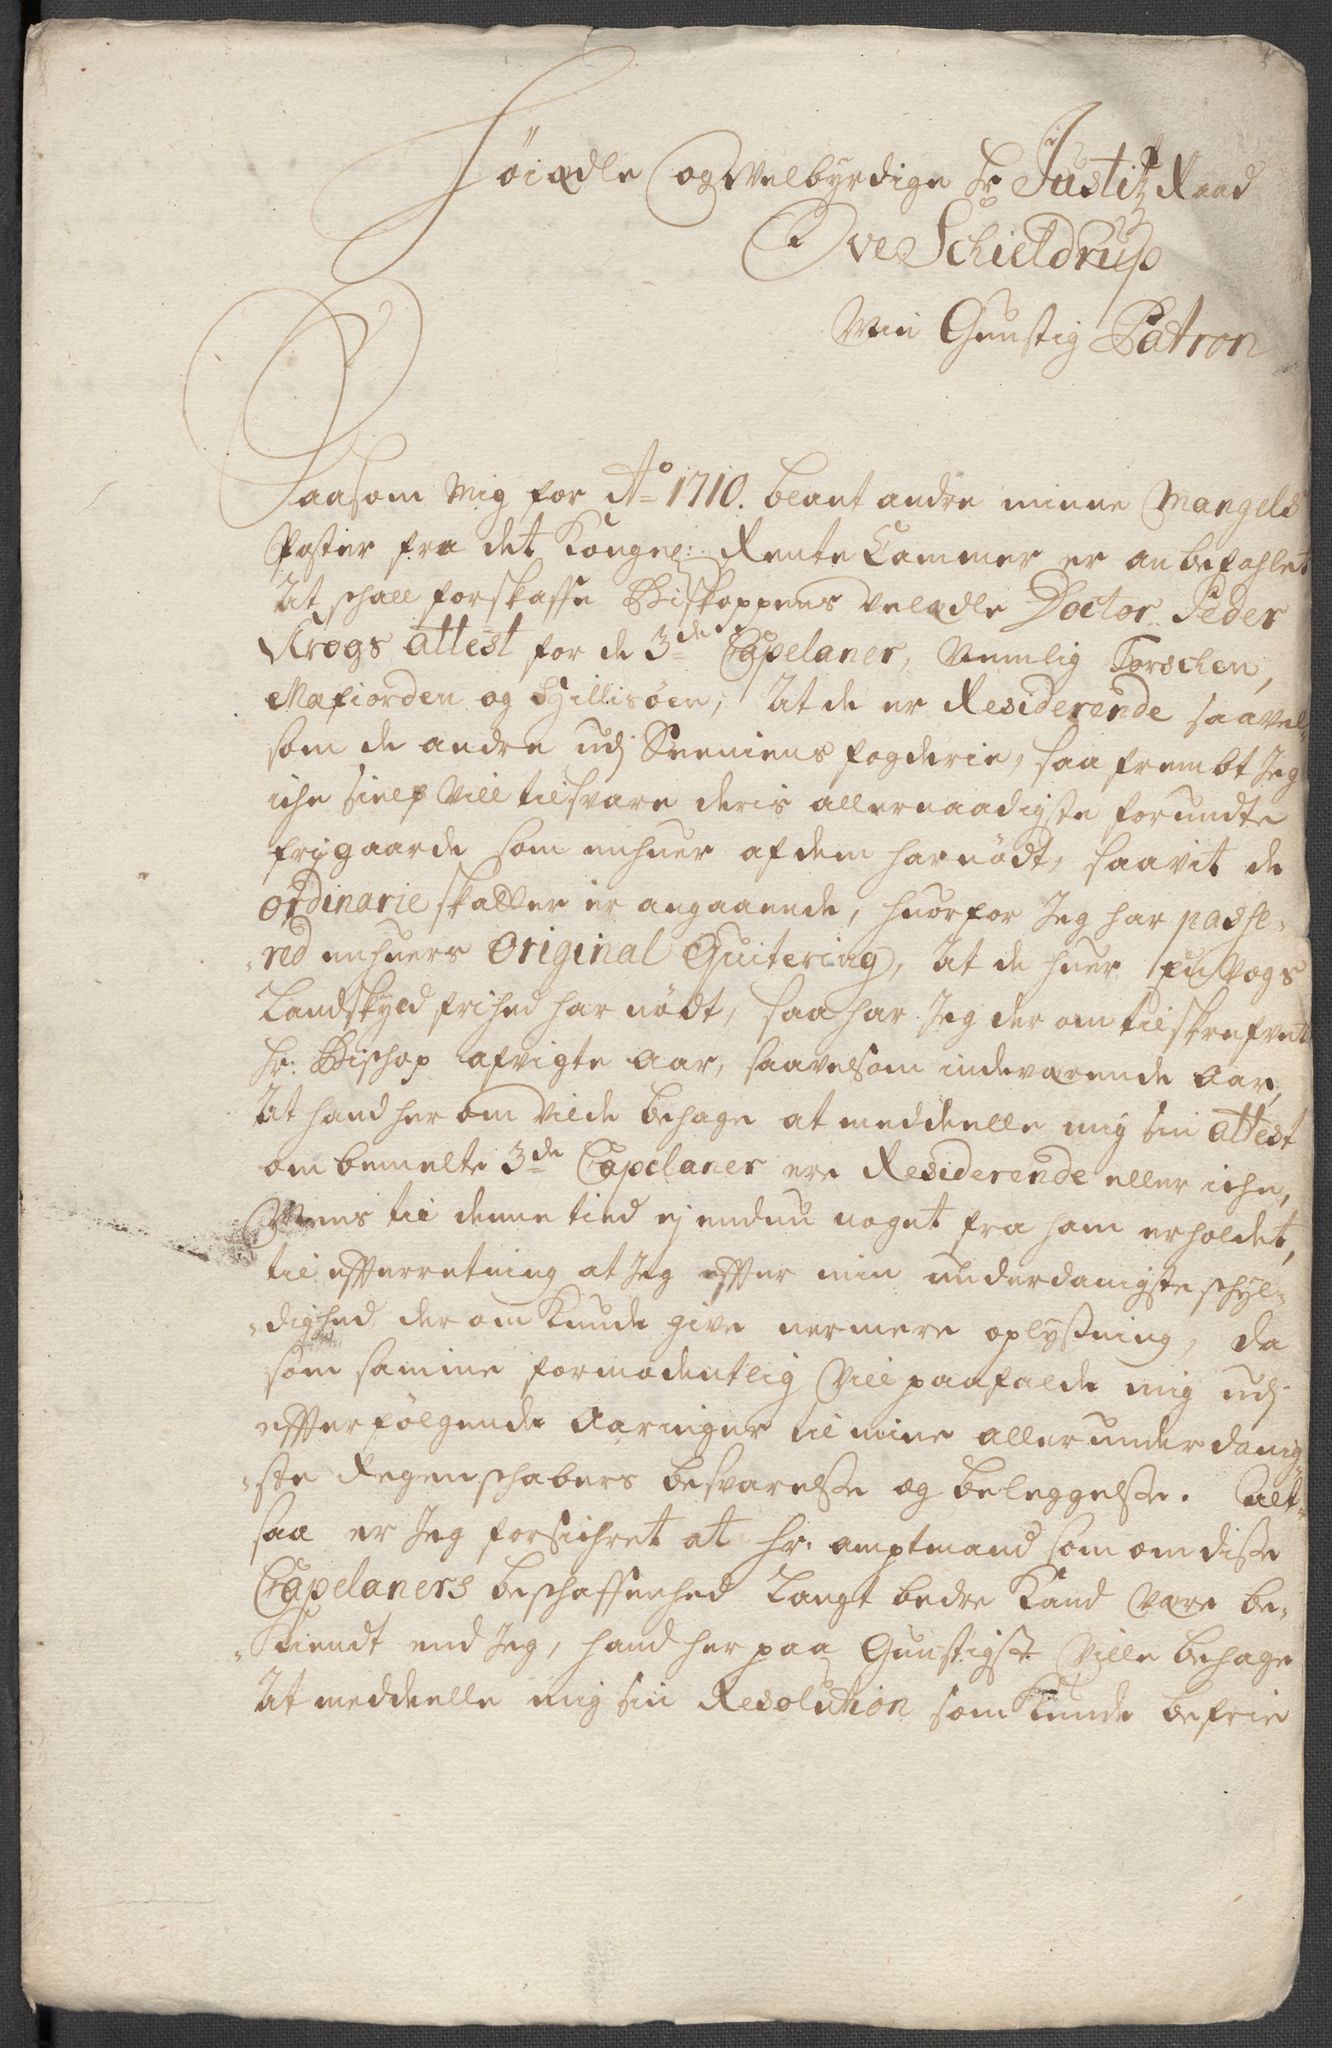 Høiædle og Welbyrdige hr Justitz Raad
Ove Schieldrup
Min Gunstig Patron
Saasom Mig for Ao 1710. blant andre minne Mangels
Poster fra det Kongel: Rente Cammer er anbefahlet
At schall forskaffe Biskoppens velædle Doctor Peder
Krogs attest for de 3de Capelaner, Nemlig Torschen,
Mefiorden og Hillisøen, At de er Residerende saavel-
som de andre udj Senniens fogderie, saa frembt Jeg
iche sielf Vill tilsvare deris allernaadigste forundte
frjgaarde som enhuer af dem har nödt, saavit de
ordinarie skatter er angaaende, huorfor Jeg har passe-
-red enhuers Original Quitering, At de huer fu Wogs
Landskyld frihed har nödt, saa har Jeg der om tilskrefvet
hr: Bischop afvigte aar, saavelsom indeværende Aar,
At hand her om Vilde behage at meddeelle mig sin attest
om bemelte 3de Capelaner ere Residerende eller iche,
Mens til denne tied ej endnu noget fra ham erholdet,
til efterretning at Jeg efter min underdanigste schyl-
-dighed der om kunde give nermere oplysning, da
som samme formodentlig Vill paafalde mig udj
efterfølgende Aaringer til mine allerunderdanig-
-ste Regenschabers besvarelse og beleggelse. Alt-
saa er Jeg forsichret at hr. amptmand som om disse
Capelaners beschaffenhed Langt bedre Kand Være be-
-kiendt end Jeg, hand her paa Gunstigst Ville behage
At meddeelle mig sin Resolution som kunde befrie